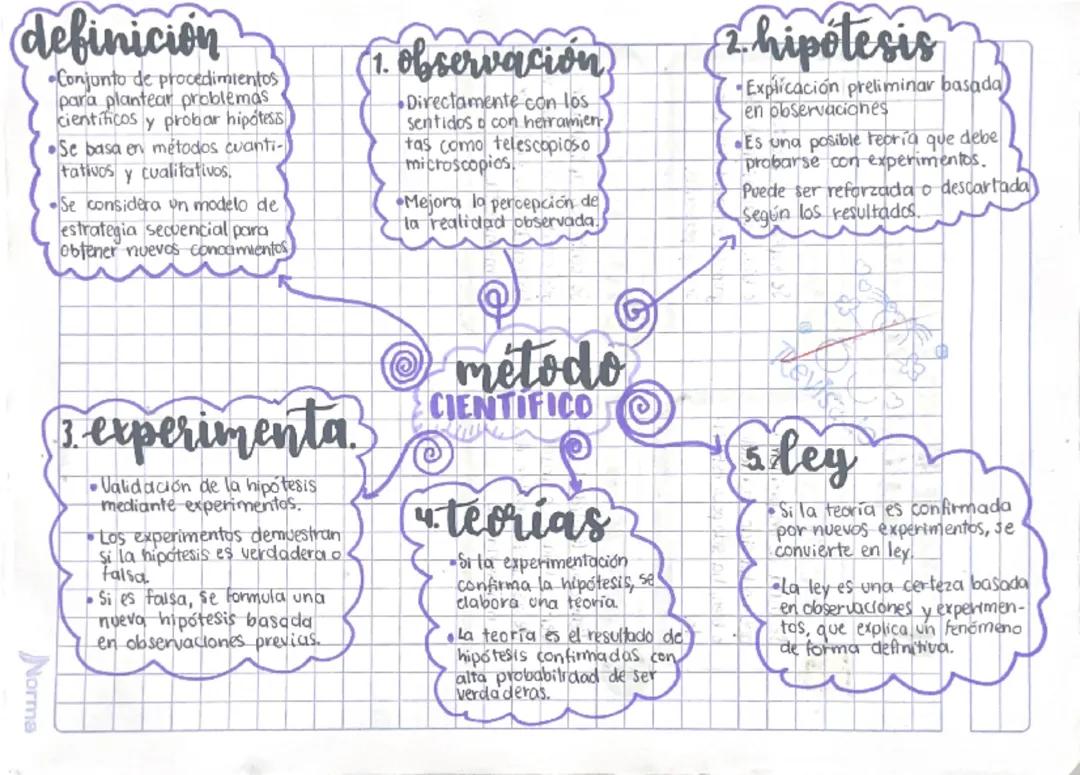 definición
•Conjunto de procedimientos
para plantear problemas
científicos y probar hipótesis
•Se basa en métodos cuanti-
tativos y cualitativos.
•Se considera un modelo de
estrategia secuencial para
obtener nuevos conocimientos
1. observación
•Directamente con los
sentidos o con herramien
tas como telescopios o
microscopios.
•Mejora la percepción de
la realidad observada.
2. hipótesis
•Explicación preliminar basada
en observaciones
•Es una posible teoría que debe
probarse con experimentos.
Puede ser reforzada o descartada
según los resultados.
método
CIENTÍFICO
3. experimenta.
•Validación de la hipótesis
mediante experimentos.
•Los experimentos demuestran
si la hipótesis es verdadera o
falsa.
•Si es falsa, se formula una
nueva hipótesis basada
en observaciones previas.
4. teorías
•Si la experimentación
confirma la hipótesis, se
elabora una teoría.
•La teoría es el resultado de
hipótesis confirmadas con
alta probabilidad de ser
verdaderas.
5. ley
•Si la teoría es confirmada
por nuevos experimentos, se
convierte en ley.
•La ley es una certeza basada
en observaciones y experimen-
tos, que explica un fenómeno
de forma definitiva.
Norma